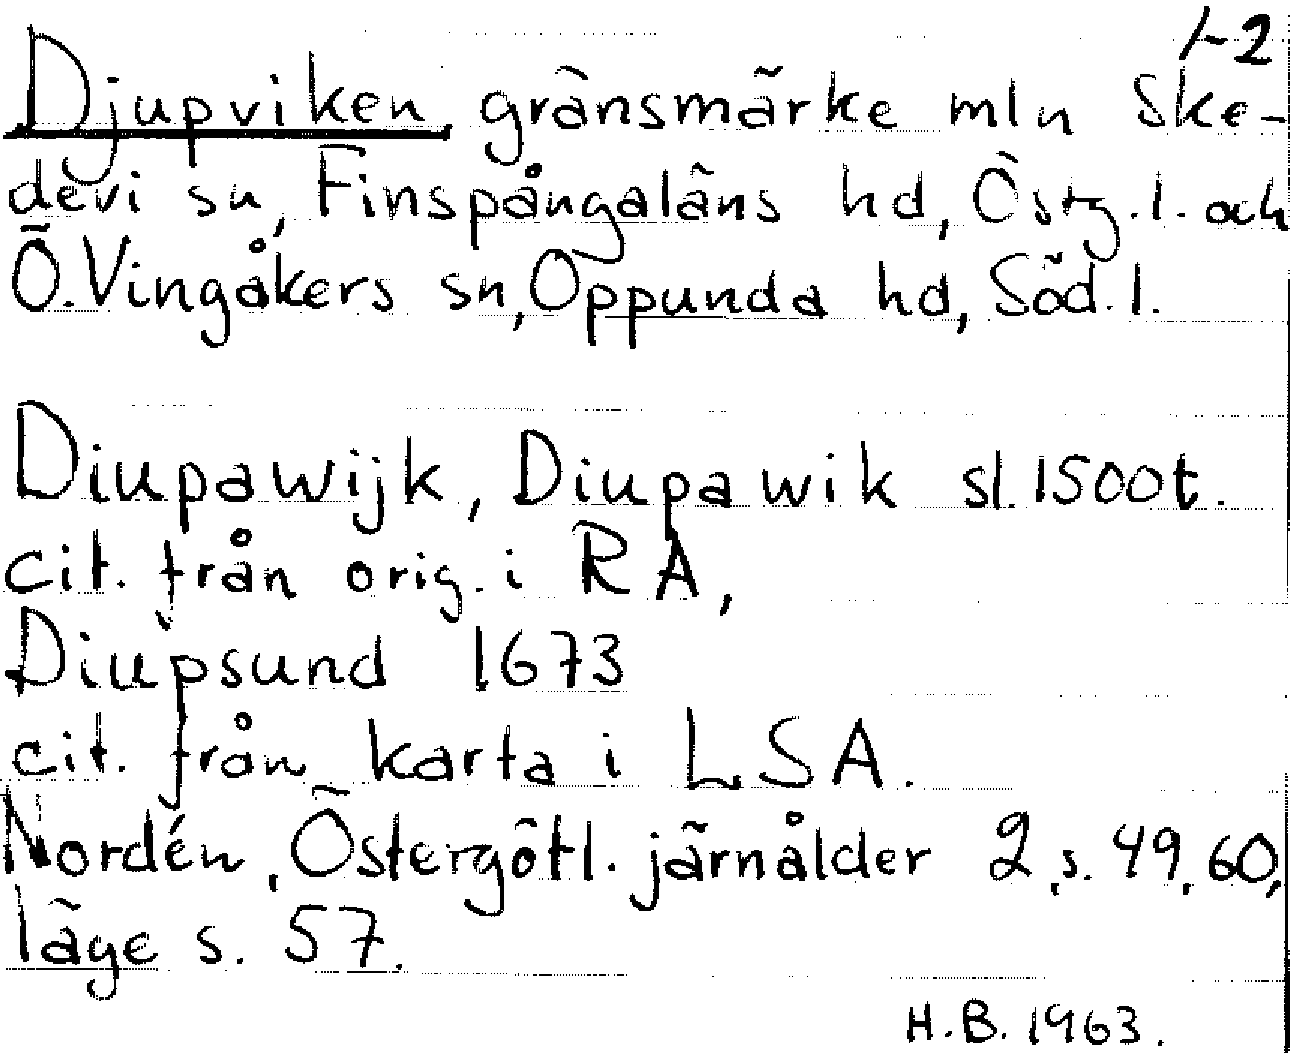 1-2
Djupviken, gränsmärke mln Ske-
devi sn, Finspångaläns hd, Östg. l. och
Ö. Vingåkers sn, Oppunda hd, Söd. l.
Diupawijk, Diupawik sl. 1500t.
cit. från orig. i RA,
Diupsund 1673
cit. från karta i LSA.
Nordén, Östergötl. järnålder 2, s. 49, 60,
läge s. 57.
H.B. 1963.